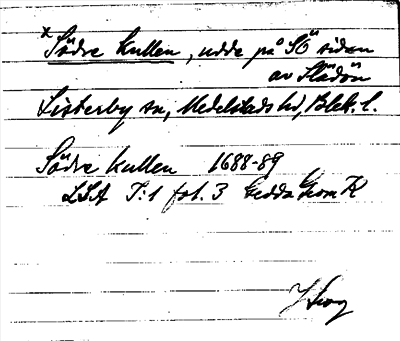 x Södre Kullen, udde på SÖ sidan
av Slädön
Listerby sn, Medelstads hd, Blek. l.
Södre Kullen 1688-89
LSA T:1 fol. 3 Gedda Geom K